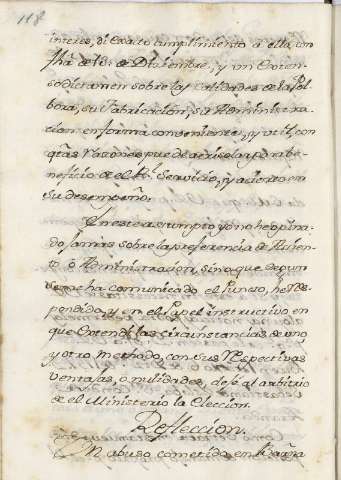 118
interes, di exacto cumplimiento a ella, con
fha de 18 de Diziembre, y un Exten-
so dictamen sobre las calidades de la Pol-
bora, su fabricacion, su Administra-
cion en forma conveniente, y util, con
qtas Razones pude adquirir para be-
neficio de el Rl. Servicio, y acierto en
su desempeño.
En este assumpto yo no he opina-
do jamàs sobre la preferencia de Asien-
to ò Administracion, sino que segun
se me ha comunicado el Punto, he res-
pondido, y en el Papel instructivo en
que Extendi las circunstancias de uno,
y otro Methodo, con sus respectivas
ventajas, ò nulidades, dejè al arbitrio
de el Ministerio la Eleccion.
Refleccion.
Un abuso cometido en España